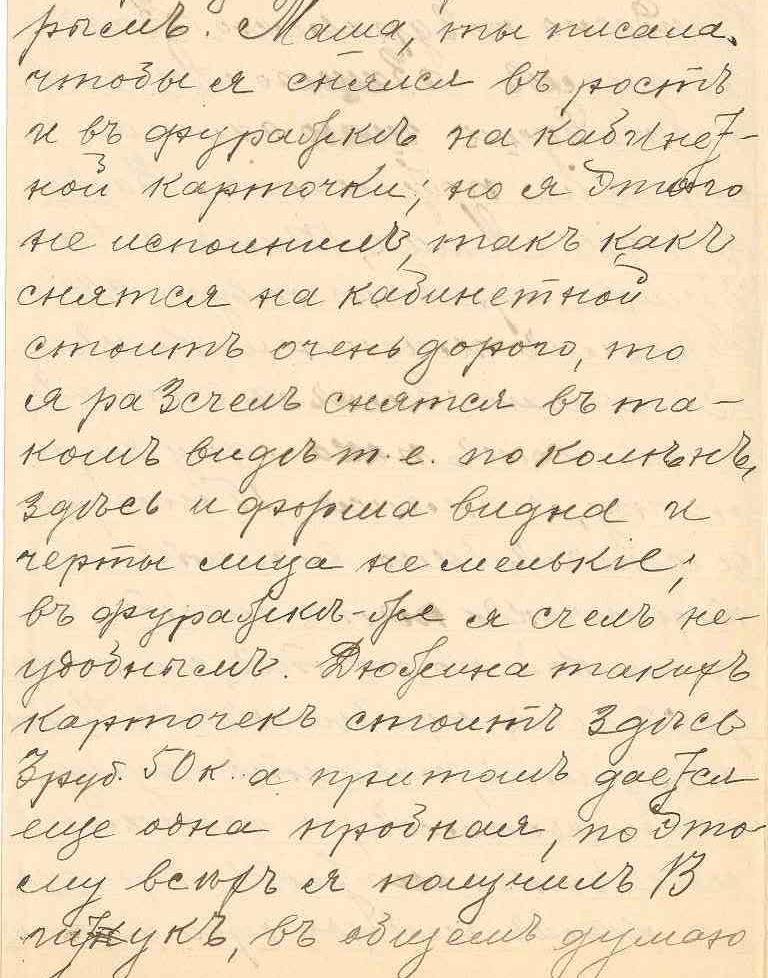 рымъ. Маша, ты писала,
чтобы я снялся въ ростъ
и въ фуражкѣ на кабинет-
ной карточки; но я этого
не исполнилъ, такъ какъ
снятся на кабинетной
стоитъ очень дорого, то
я разсчелъ снятся въ та-
комъ видѣ т.е. по колѣнъ,
здѣсь и форма видна и
черты лица не мелькіе;
въ фуражкѣ-же я счелъ не-
удобнымъ. Дюжина такихъ
карточекъ стоитъ здѣсь
3 руб. 50 к. а притомъ дается
еще одна пробная, по это-
му всѣхъ я получилъ 13
штукъ, въ общемъ думаю